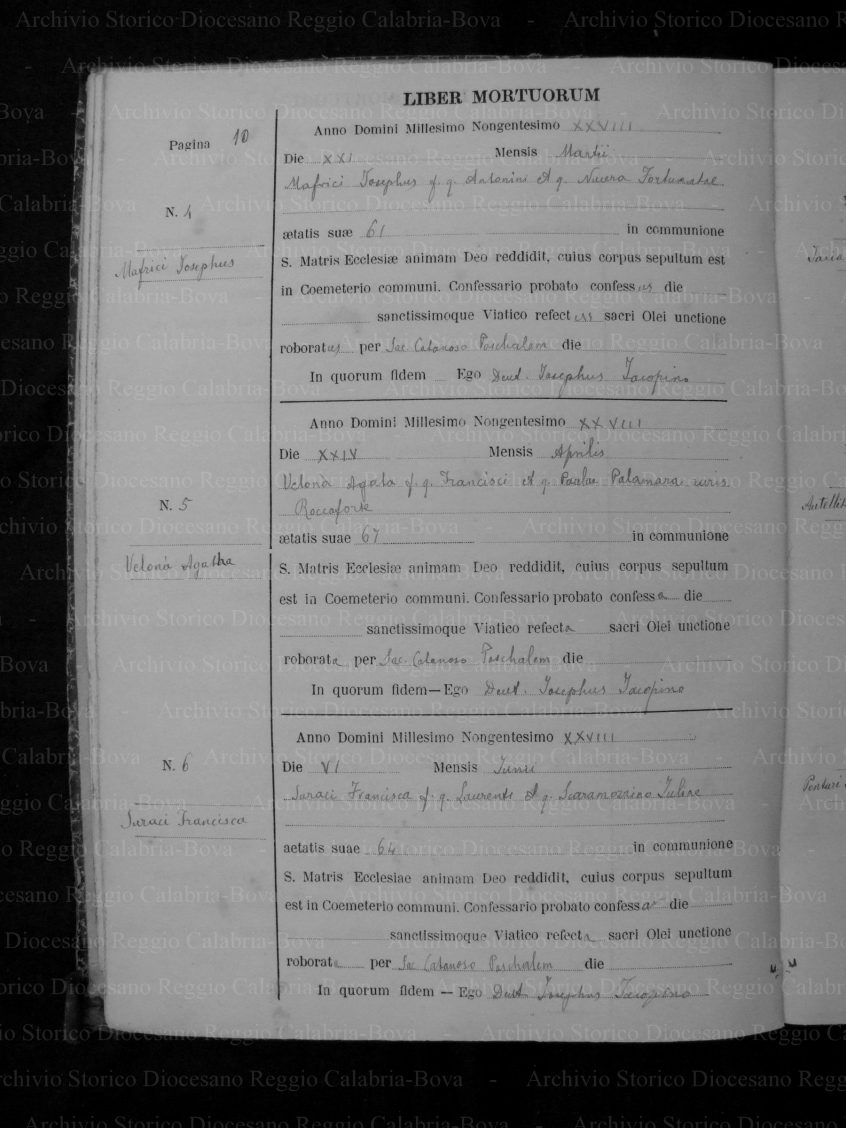 LIBER MORTUORUM
Pagina 10
Anno Domini Millesimo Nongentesimo XXVIII
Die XXI Mensis Martii
Mafrici Josephus f. q. Antonini et q. Nucera Fortunatae
N. 4
ætatis suæ 61 in communione
Mafrici Josephus
S. Matris Ecclesiæ animam Deo reddidit, cuius corpus sepultum est
in Coemeterio communi. Confessario probato confessus die
sanctissimoque Viatico refectus sacri Olei unctione
roboratus per Sac Catanoso Paschalem die
In quorum fidem Ego Deut. Josephus Iacopino
Anno Domini Millesimo Nongentesimo XXVIII
Die XXIV Mensis Aprilis
Velonà Agata f. q. Francisci et q. Paulae Palamara
N. 5
Roccaforte
ætatis suae 67 in communione
Velonà Agatha
S. Matris Ecclesiæ animam Deo reddidit, cuius corpus sepultum
est in Coemeterio communi. Confessario probato confessa die
sanctissimoque Viatico refecta sacri Olei unctione
roborata per Sac. Catanoso Paschalem die
In quorum fidem — Ego Deut. Josephus Iacopino
Anno Domini Millesimo Nongentesimo XXVIII
N. 6
Die VI Mensis Junii
Suraci Francisca f. q. Laurenti et q. Scaramozzino Juliae
Suraci Francisca
aetatis suae 64 in communione
S. Matris Ecclesiae animam Deo reddidit, cuius corpus sepultum
est in Coemeterio communi. Confessario probato confessa die
sanctissimoque Viatico refecta sacri Olei unctione
roborata per Sac Catanoso Paschalem die
In quorum fidem — Ego Deut. Josephus Iacopino
Archivio Storico Diocesano Reggio Calabria-Bova